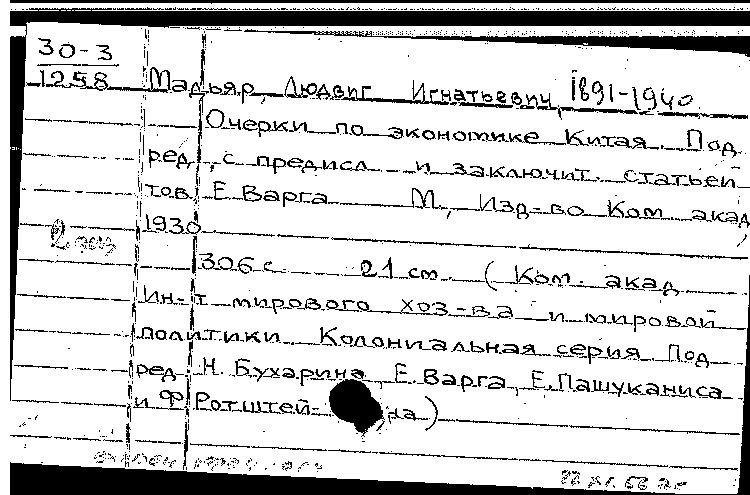 30-3
1258 Мадьяр, Людвиг Игнатьевич, 1891-1940.
Очерки по экономике Китая. Под
ред., с предисл. и заключит. статьей
тов. Е. Варга М., Изд-во Ком. акад.,
1930
2 экз
306 с. 21 см. (Ком. акад.
Ин-т мирового хоз-ва и мировой
политики. Колониальная серия. Под
ред. Н. Бухарина, Е. Варга, Е. Пашуканиса
и Ф. Ротштей-на)